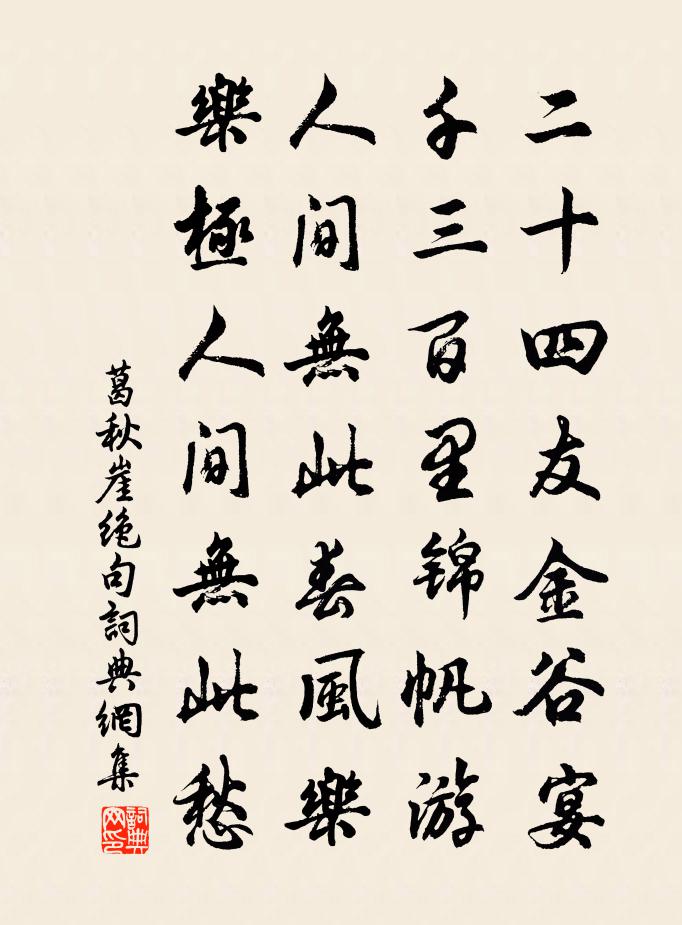 二十四友金谷宴
千三百里锦帆游
人间無此春風樂
樂極人间無此愁
葛秋崖绝句詞典網集
詞典网印